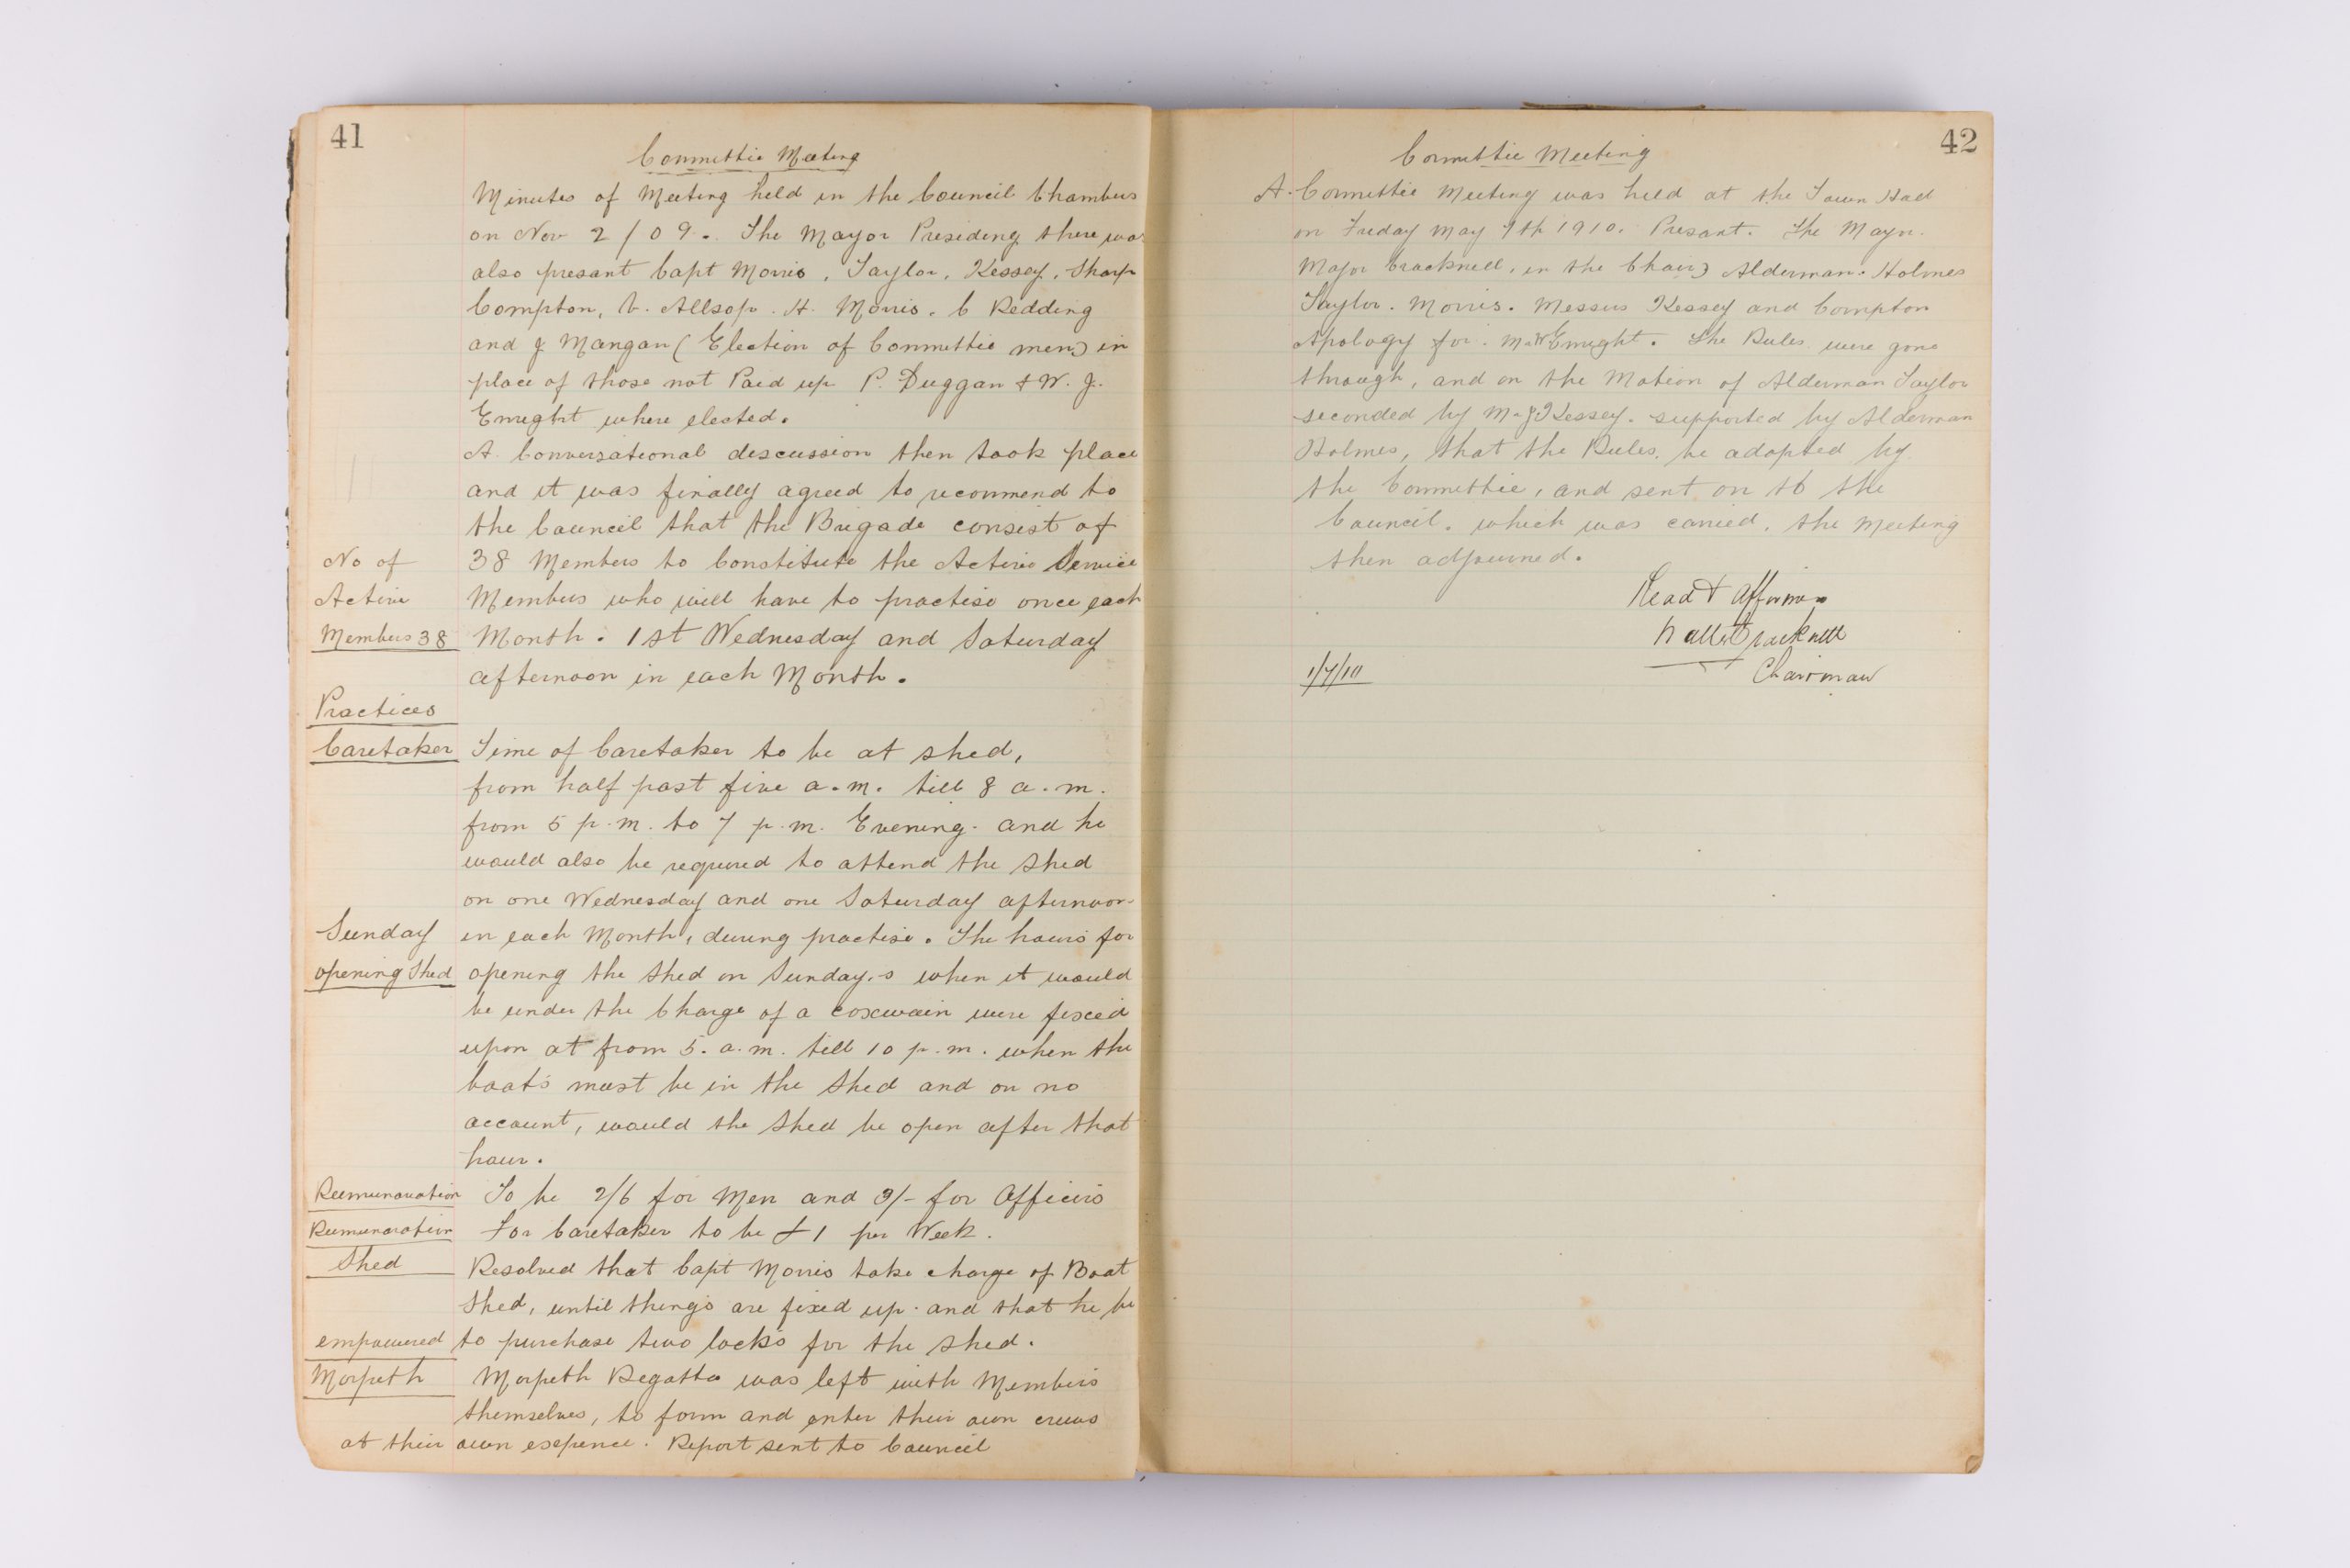 41
Committie Meeting
Minutes of Meeting held in the Council Chambers
on Nov 2/09. The Mayor Presideng there was
also presant Capt Morris, Taylor, Kessey, Sharp
Compton, V. Allsop. H. Morris. C Redding
and J Mangan (Election of Committie men) in
place of those not Paid up P. Duggan & W. J.
Enright where elected.
A Conversational discussion then took place
and it was finally agreed to recommend to
the Council that the Brigade consist of
No of 38 Members to Constitute the Active Service
Active Members who will have to practise once each
Members 38 Month. 1st Wednesday and Saturday
afternoon in each Month.
Practices
Caretaker Time of Caretaker to be at shed,
from half past five a.m. till 8 a.m.
from 5 p.m. to 7 p.m. Evening. and he
would also be required to attend the shed
on one Wednesday and one Saturday afternoon
Sunday in each Month, during practise. The hours for
opening Shed opening the shed on Sunday,s when it would
be under the Charge of a coxwain were fixced
upon at from 5. a.m. till 10 p.m. when the
boats must be in the shed and on no
account, would the shed be open after that
hour.
Reemunaration To be 2/6 for Men and 3/- for Officers
Reemunaration For Caretaker to be £1 per Week.
Shed Resolved that Capt Morris take charge of Boat
shed, until things are fixed up. and that he be
empowered to purchase two locks for the shed.
Morpeth Morpeth Regatta was left with Members
themselves, to form and enter their own crews
at their own exspence. Report sent to Council
42
Committie Meeting
A. Committie Meeting was held at the Town Hall
on Friday May 7th 1910. Presant. The Mayr.
Major Cracknell, in the Chair) Alderman. Holmes
Taylor. Morris. Messus Kessey and Compton
Apology for. Mr W Enright. The Rules were gone
through, and on the Motion of Alderman Taylor
seconded by Mr J Kessey. supported by Alderman
Holmes, that the Rules, be adopted by
the Committie, and sent on to the
Council. which was carried. the Meeting
then adjourned.
Read & Affirmed
Walter Cracknell
1/7/10 Chairman